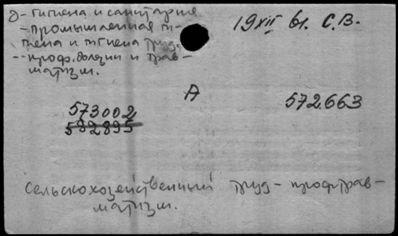 о- гигиена и санитария
- промышленная ги-
гиена и гигиена труд.
-- проф. болезни и трав-
матизм.
19 XII 61. С.В.
А
573002
592895
572.663
сельскохозяйственный труд - профтрав-
матизм.